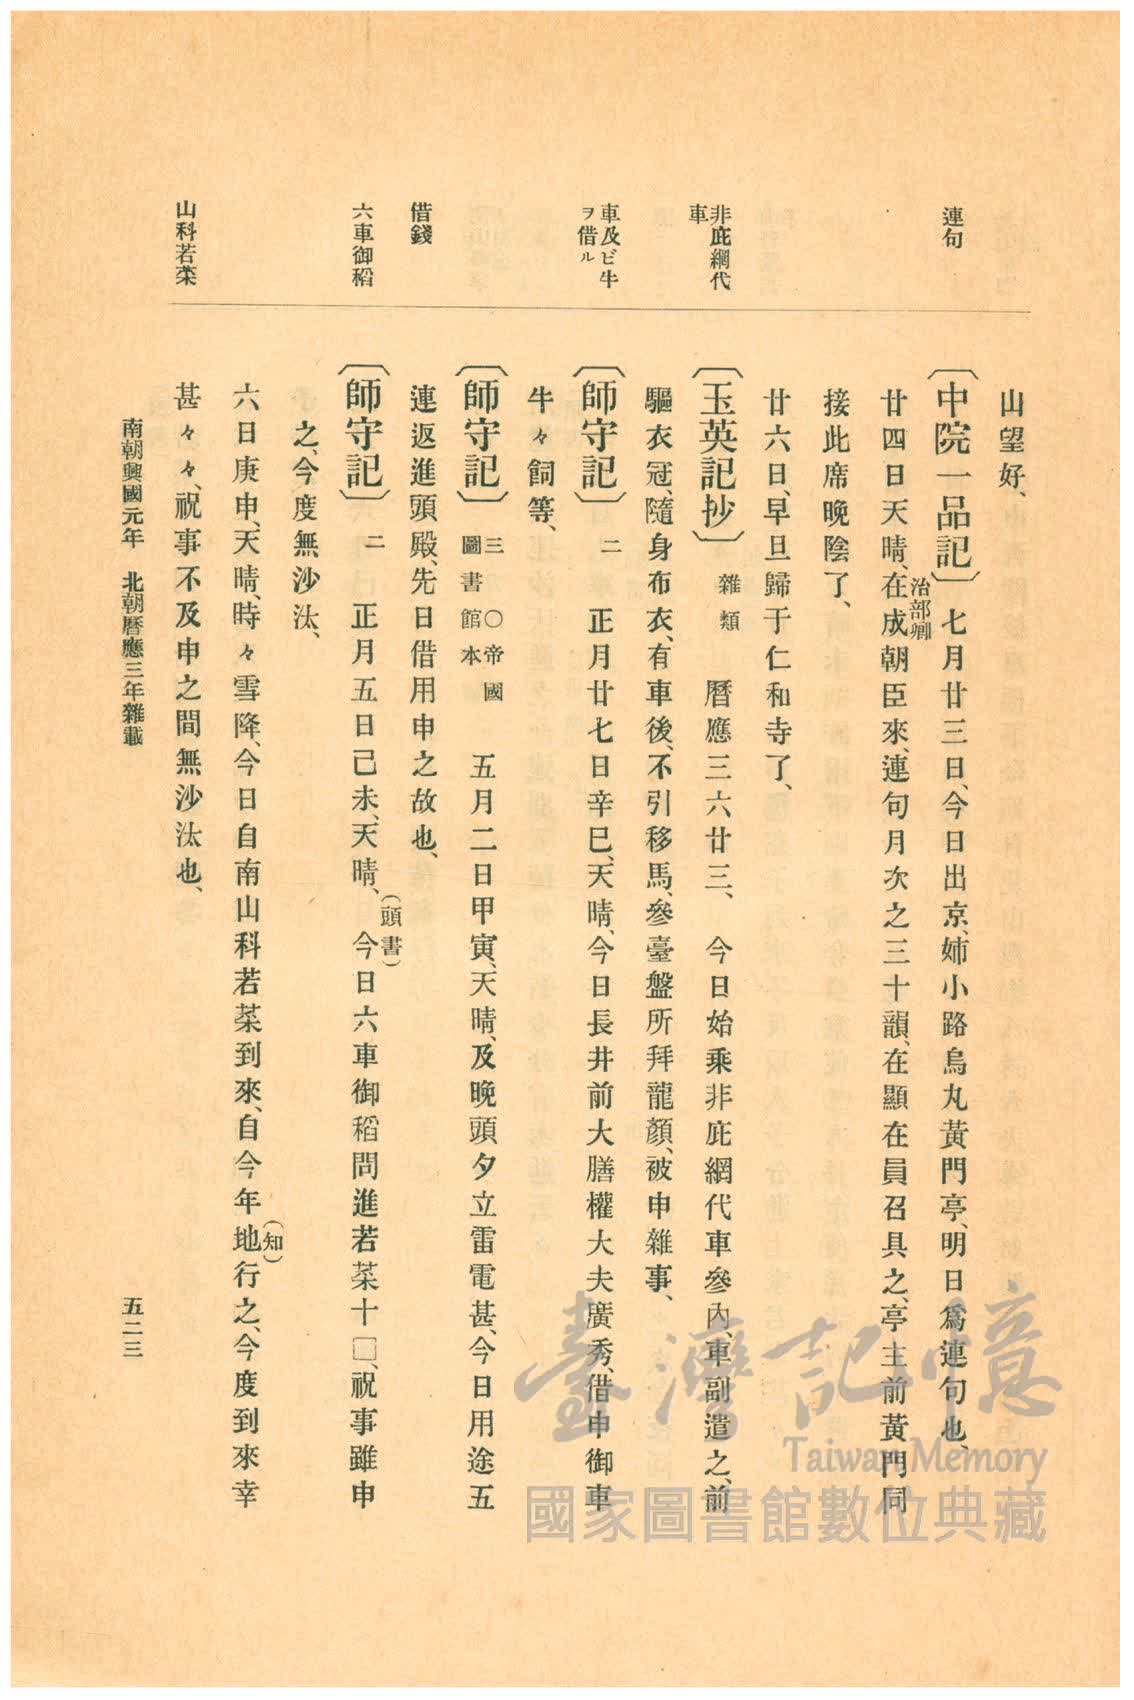 山望好、
連句
〔中院一品記〕七月廿三日、今日出京、姉小路烏丸黃門亭、明日爲連句也、
廿四日天晴、在成朝臣來、連句月次之三十韻、在顯在員召具之、亭主前黃門同
治部卿
接此席晚陰了、
廿六日、早旦歸于仁和寺了、
非庇網代車
〔玉英記抄〕雜類 曆應三六廿三、 今日始乘非庇網代車參內、車副遣之、前
驅衣冠、隨身布衣、有車後、不引移馬、參臺盤所拜龍顏、被申雜事、
車及ビ牛ヲ借ル
〔師守記〕二 正月廿七日辛巳、天晴、今日長井前大膳權大夫廣秀、借申御車
牛々飼等、
〔師守記〕三 〇帝國圖書館本 五月二日甲寅、天晴、及晚頭、夕立雷電甚、今日用途五
借錢
連返進頭殿、先日借用申之故也、
六車御稻
〔師守記〕二 正月五日己未、天晴、(頭書)今日六車御稻問進若菜十□、祝事雖申
之、今度無沙汰、
六日庚申、天晴、時々雪降、今日自南山科若菜到來、自今年地(知)行之、今度到來幸
山科若菜
甚々々、祝事不及申之間無沙汰也、
南朝興國元年 北朝曆應三年雜載
五二三
臺灣記憶
Taiwan Memory
國家圖書館數位典藏